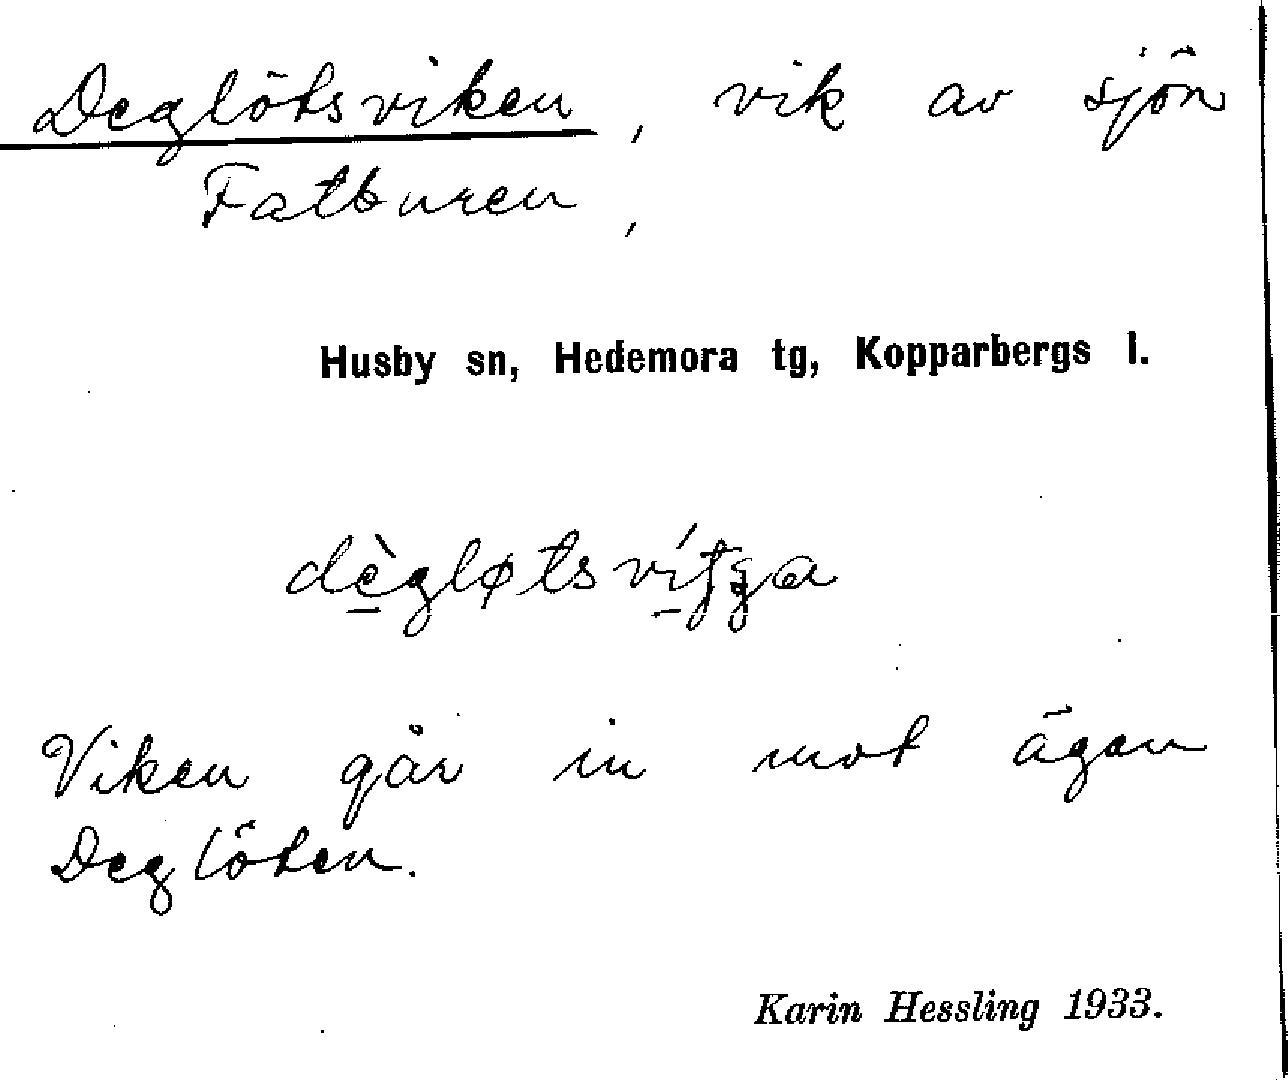 Deglötsviken, vik av sjön
Fatburen,
Husby sn, Hedemora tg, Kopparbergs l.
Viken går in mot ägan
Deglöten.
Karin Hessling 1933.